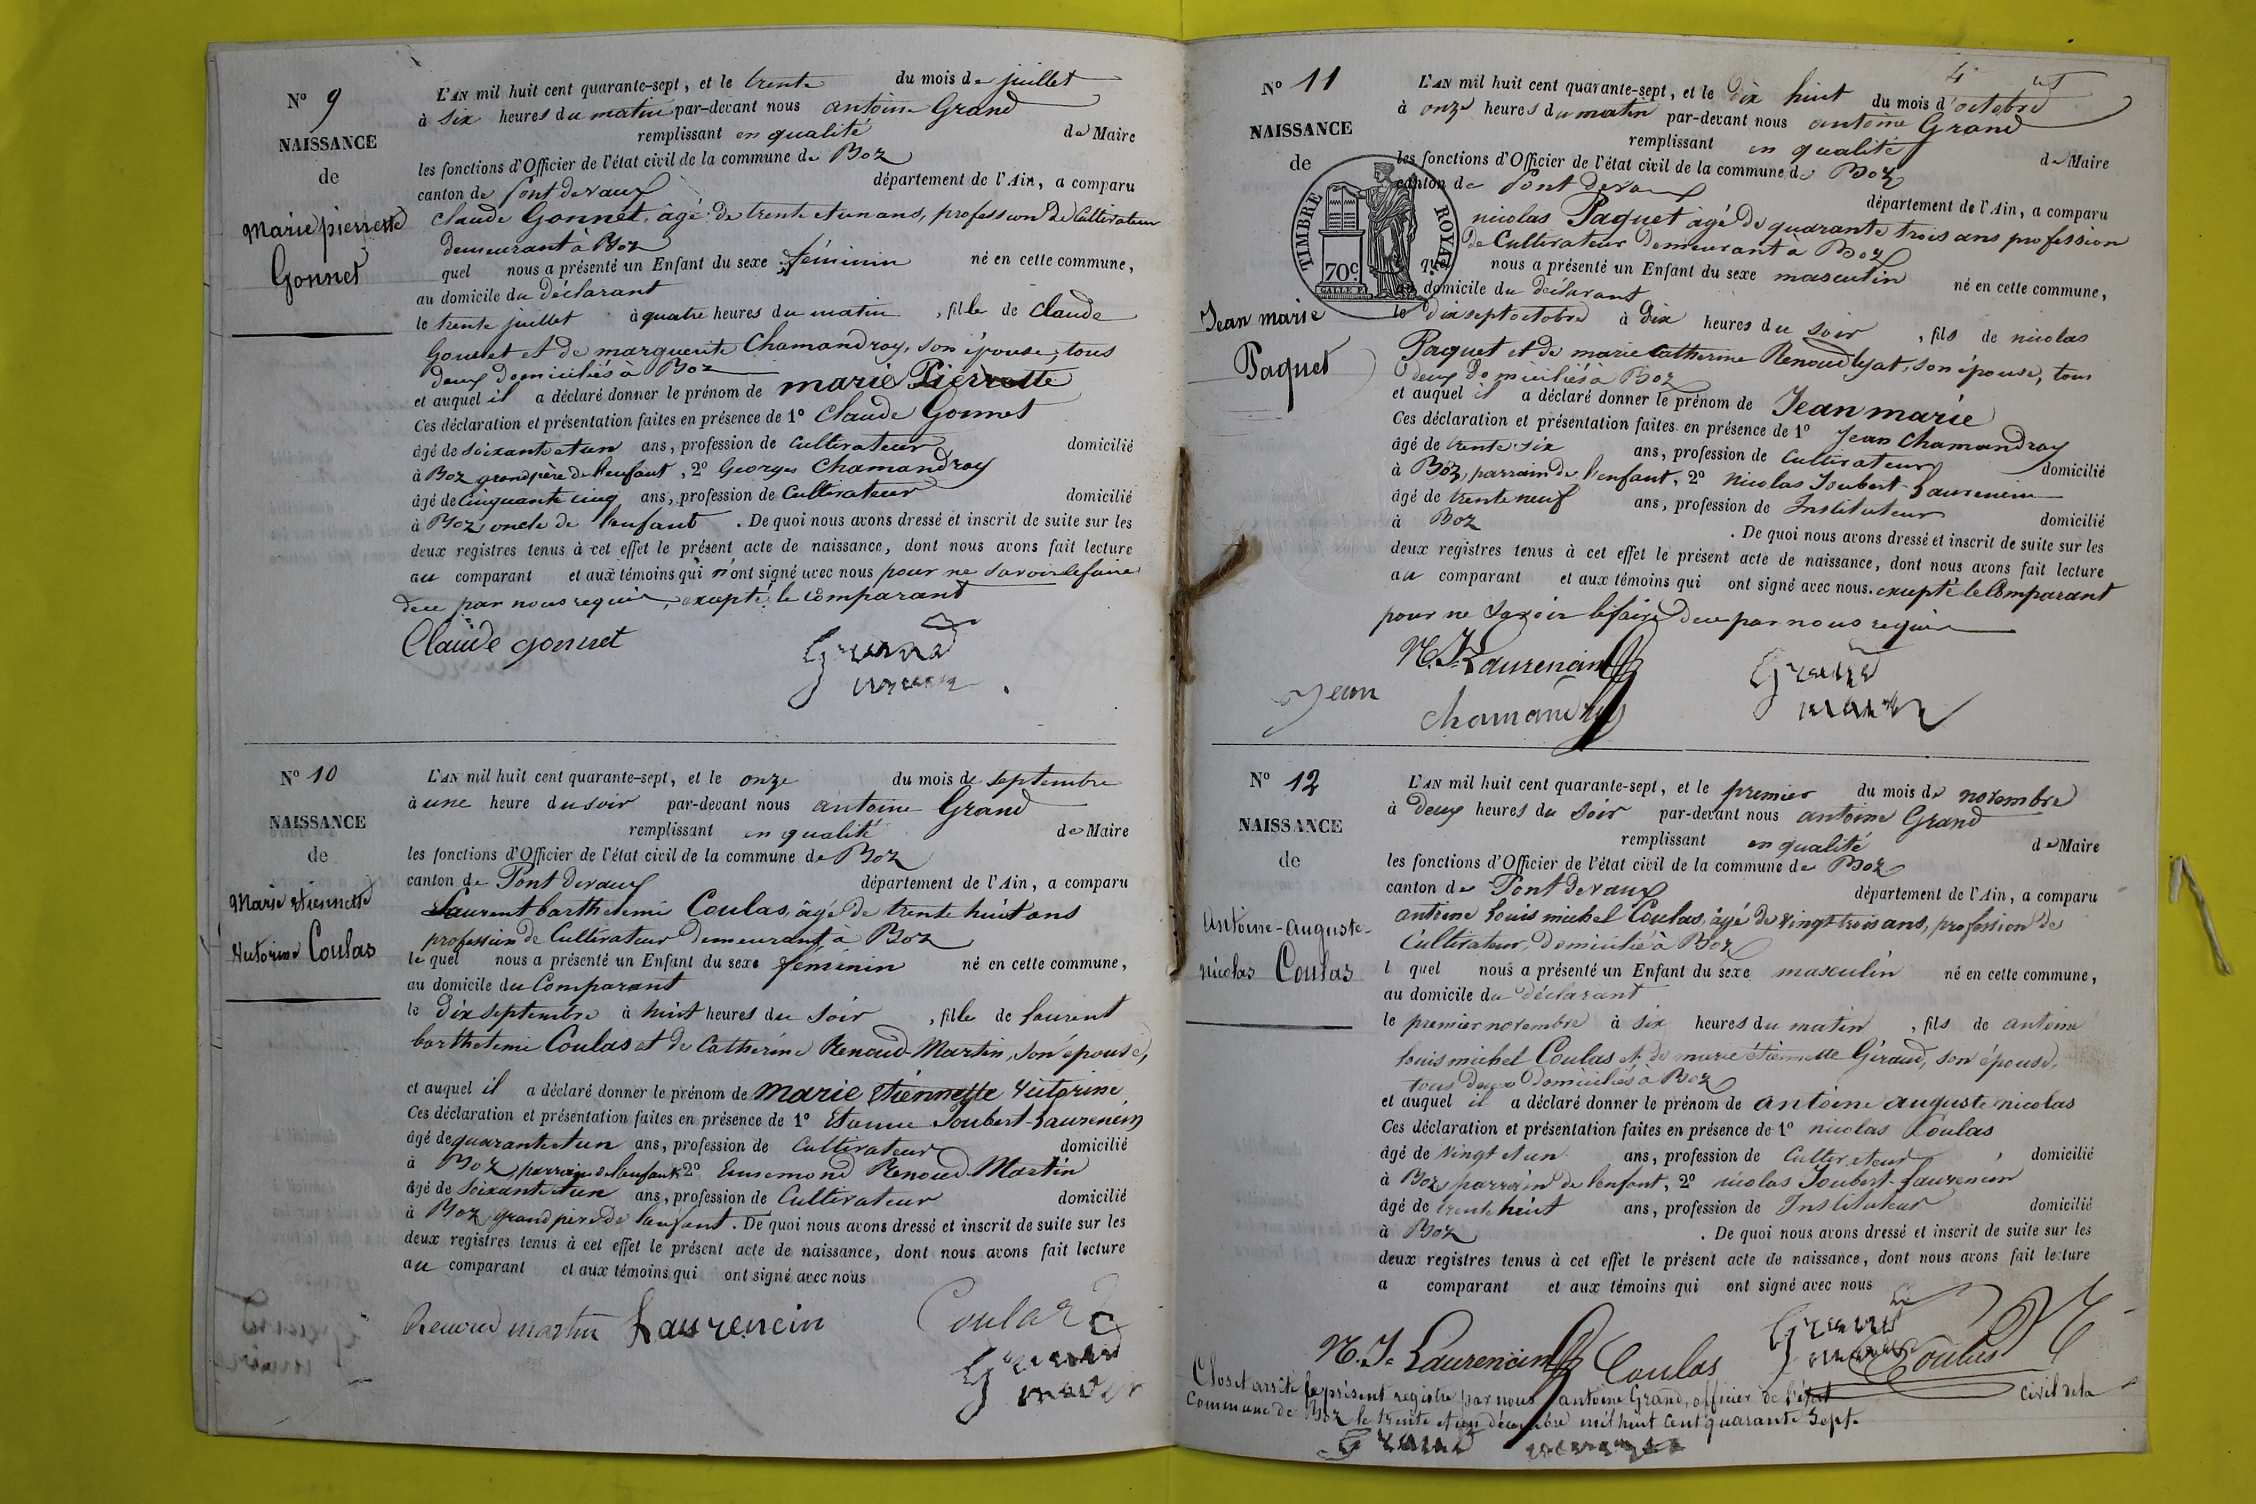 N° 9
NAISSANCE
de
Marie pierrette
Gonnet
L'AN mil huit cent quarante-sept, et le trente du mois de juillet
à six heures du matin par-devant nous antoine Grand
remplissant en qualité de Maire
les fonctions d'Officier de l'état civil de la commune de Boz
canton de Pont devaux département de l'Ain, a comparu
Claude Gonnet, âgé de trente et un ans, profession de Cultivateur
demeurant à Boz
quel nous a présenté un Enfant du sexe féminin né en cette commune,
au domicile du déclarant
le trente juillet à quatre heures du matin, fille de Claude
Gonnet et de marguerite Chamandray, son épouse, tous
deux domiciliés à Boz
et auquel il a déclaré donner le prénom de marie Pierrette
Ces déclaration et présentation faites en présence de 1° Claude Gonnet
âgé de soixante et un ans, profession de Cultivateur domicilié
à Boz grand père de l'enfant, 2° Georges Chamandray
âgé de Cinquante cinq ans, profession de Cultivateur domicilié
à Boz oncle de l'enfant. De quoi nous avons dressé et inscrit de suite sur les
deux registres tenus à cet effet le présent acte de naissance, dont nous avons fait lecture
au comparant et aux témoins qui n'ont signé avec nous pour ne savoir le faire
de ce par nous requis, excepté le comparant
Claude gonnet Grand
maire
N° 10
NAISSANCE
de
Marie etiennette
Victorine Coulas
L'AN mil huit cent quarante-sept, et le onze du mois de septembre
à une heure du soir par-devant nous antoine Grand
remplissant en qualité de Maire
les fonctions d'Officier de l'état civil de la commune de Boz
canton de Pont devaux département de l'Ain, a comparu
Laurent barthelemi Coulas, âgé de trente huit ans
profession de Cultivateur demeurant à Boz
le quel nous a présenté un Enfant du sexe féminin né en cette commune,
au domicile du Comparant
le dix septembre à huit heures du soir, fille de Laurent
barthelemi Coulas et de Catherine Renoud-Martin, son épouse,
et auquel il a déclaré donner le prénom de Marie Etiennette Victorine
Ces déclaration et présentation faites en présence de 1° Etienne Joubert-Laurencin
âgé de quarante et un ans, profession de Cultivateur domicilié
à Boz, parrain de l'enfant 2° Ennemond Renoud-Martin
âgé de soixante et un ans, profession de Cultivateur domicilié
à Boz, grand père de l'enfant. De quoi nous avons dressé et inscrit de suite sur les
deux registres tenus à cet effet le présent acte de naissance, dont nous avons fait lecture
au comparant et aux témoins qui ont signé avec nous
Renoud martin Laurencin Coulas
Grand
maire
N° 11
NAISSANCE
de
TIMBRE ROYAL
70c.
Jean marie
Paquet
L'AN mil huit cent quarante-sept, et le dix huit du mois d'octobre
à onze heures du matin par-devant nous antoine Grand
remplissant en qualité de Maire
les fonctions d'Officier de l'état civil de la commune de Boz
canton de Pont devaux département de l'Ain, a comparu
nicolas Paquet âgé de quarante trois ans profession
de Cultivateur demeurant à Boz
quel nous a présenté un Enfant du sexe masculin né en cette commune,
au domicile du declarant
le dix sept octobre à dix heures du soir, fils de nicolas
Paquet et de marie Catherine Renoud lyat, son épouse, tous
deux domiciliés à Boz
et auquel il a déclaré donner le prénom de Jean marie
Ces déclaration et présentation faites en présence de 1° Jean Chamandray
âgé de trente six ans, profession de Cultivateur domicilié
à Boz, parrain de l'enfant, 2° nicolas Joubert-Laurencin
âgé de trente neuf ans, profession de Instituteur domicilié
à Boz. De quoi nous avons dressé et inscrit de suite sur les
deux registres tenus à cet effet le présent acte de naissance, dont nous avons fait lecture
au comparant et aux témoins qui ont signé avec nous. excepté le Comparant
pour ne savoir le faire de ce par nous requis
N. J. Laurencin Grand
Jean Chamandray maire
N° 12
NAISSANCE
de
Antoine-auguste-
nicolas Coulas
L'AN mil huit cent quarante-sept, et le premier du mois de novembre
à deux heures du soir par-devant nous antoine Grand
remplissant en qualité de Maire
les fonctions d'Officier de l'état civil de la commune de Boz
canton de Pont devaux département de l'Ain, a comparu
antoine Louis michel Coulas, âgé de vingt trois ans, profession de
Cultivateur, domicilié à Boz
l quel nous a présenté un Enfant du sexe masculin né en cette commune,
au domicile du déclarant
le premier novembre à six heures du matin, fils de antoine
Louis michel Coulas et de marie étiennette Géraud, son épouse,
tous deux domiciliés à Boz
et auquel il a déclaré donner le prénom de antoine auguste nicolas
Ces déclaration et présentation faites en présence de 1° nicolas Coulas
âgé de vingt et un ans, profession de Cultivateur domicilié
à Boz, parrain de l'enfant, 2° nicolas Joubert-Laurencin
âgé de trente huit ans, profession de Instituteur domicilié
à Boz. De quoi nous avons dressé et inscrit de suite sur les
deux registres tenus à cet effet le présent acte de naissance, dont nous avons fait lecture
a comparant et aux témoins qui ont signé avec nous
N. J. Laurencin Coulas Grand maire Coulas
Clos et arrêté le présent registre par nous antoine Grand, officier de l'état civil de la
Commune de Boz le trente et un décembre mil huit cent quarante sept.
Grand maire